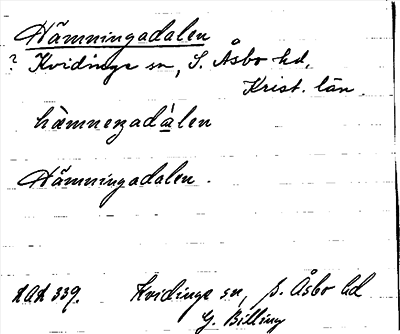 Hämningadalen
? Kvidinge sn, S. Åsbo hd,
Krist. län.
hæmneŋadàlen
Hämningadalen.
LAL 339. Kvidinge sn, s. Åsbo hd
G. Billing